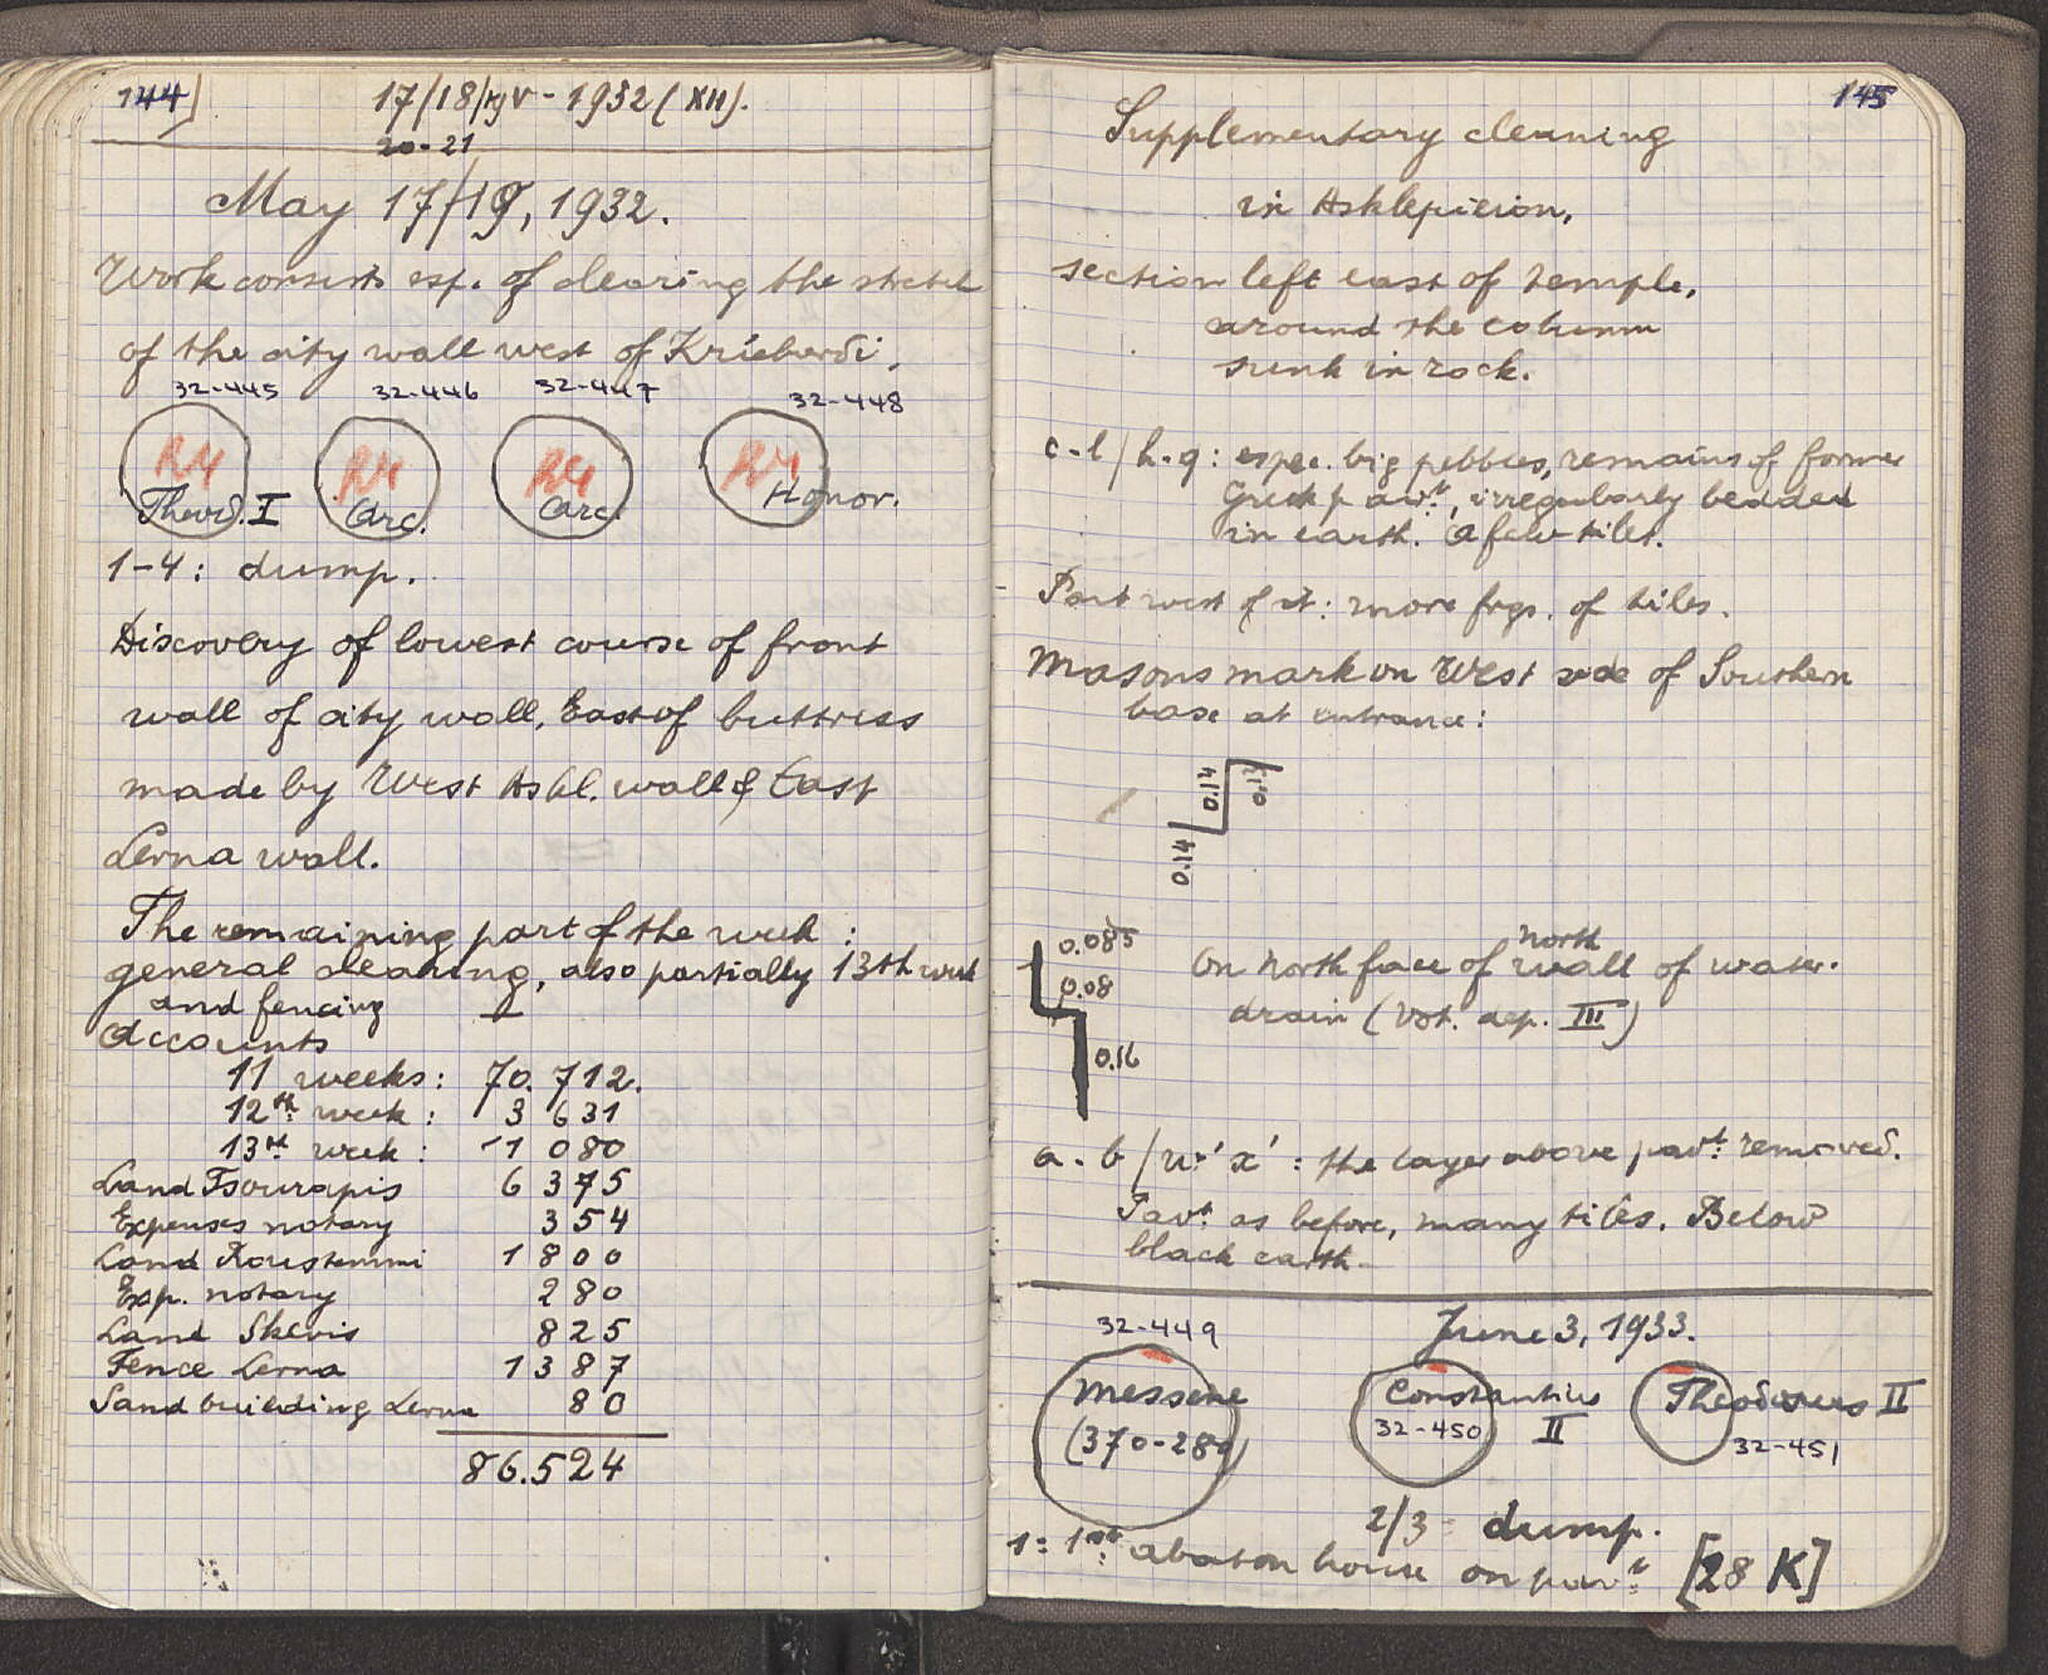 144]
17/18/19 V - 1932 (XII).
20-21
May 17/19, 1932.
Work consists esp. of clearing the stretch
of the city wall west of
32-445 32-446 32-447 32-448
R4 R4 R4 R4
Theod. I Arc. Arc. Honor.
1-4: dump.
Discovery of lowest course of front
wall of city wall, East of buttress
made by West Askl. wall & East
Lerna wall.
The remaining part of the week:
general cleaning, also partially 13th week
and fencing —
Accounts
11 weeks: 70.712.
12th week: 3 631
13th week: 1 080
Land Tsourapis 6 375
Expenses notary 354
Land Roustemmi 1 800
Exp. notary 280
Land Skevis 825
Fence Lerna 1 387
Sand building Lerna 80
86.524
145
Supplementary cleaning
in Asklepieion,
section left east of temple,
around the column
sunk in rock.
c-l / h-q: espec. big pebbles, remains of former
Greek pavt., irregularly bedded
in earth. A few tiles.
Part west of it: more frgs. of tiles.
Masons mark on West side of Southern
base at entrance:
0.14 0.13
0.14
0.085
0.08
0.16
north
On north face of wall of water-
drain (Vot. dep. III)
a-b / w'x': the layer above pavt. removed.
Pavt. as before, many tiles. Below
black earth.
June 3, 1933.
32-449
Messene
(370-280)
Constantius
32-450 II
Theodosius II
32-451
2/3 = dump.
1: 1st: abaton house on pavt. [28 K]